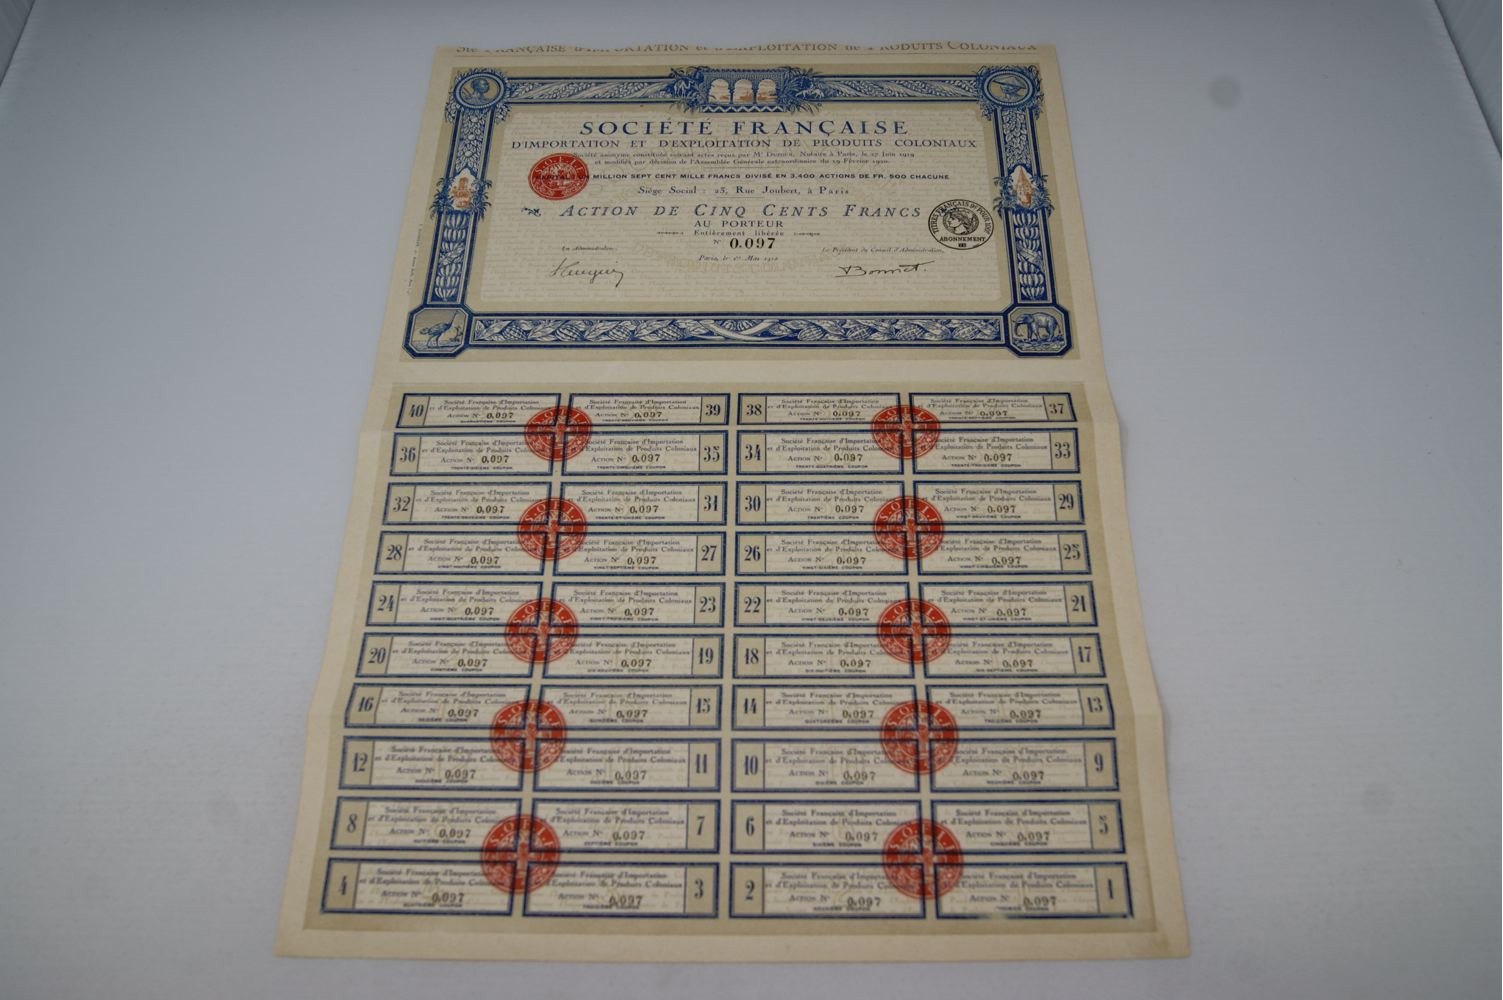 SOCIÉTÉ FRANÇAISE
D'IMPORTATION ET D'EXPLOITATION DE PRODUITS COLONIAUX
Société anonyme constituée suivant actes reçus par Mᵉ Notaire à Paris, le 27 Juin 1919
et modifiés par décision de l'Assemblée Générale extraordinaire du 19 Février 1920.
MILLION SEPT CENT MILLE FRANCS DIVISÉ EN 3.400 ACTIONS DE FR. 500 CHACUNE
Siège Social : 23, Rue Joubert, à Paris
ACTION DE CINQ CENTS FRANCS
AU PORTEUR
Entièrement libérée
Nº 0.097
Un Administrateur, Le Président du Conseil d'Administration,
Paris, le 1er Mai
TITRES FRANÇAIS
ABONNEMENT
40 Société Française d'Importation et d'Exploitation de Produits Action Nº 0.097 QUARANTIÈME COUPON
39 Société Française d'Importation et d'Exploitation de Produits Coloniaux Action Nº 0.097 TRENTE-NEUVIÈME COUPON
38 Société Française d'Importation et d'Exploitation de Produits Action Nº 0.097 TRENTE-HUITIÈME COUPON
37 Société Française d'Importation et d'Exploitation de Produits Coloniaux Action Nº 0.097 TRENTE-SEPTIÈME COUPON
36 Société Française d'Importation et d'Exploitation de Produits Action Nº 0.097 TRENTE-SIXIÈME COUPON
35 Société Française d'Importation et d'Exploitation de Produits Coloniaux Action Nº 0.097 TRENTE-CINQUIÈME COUPON
34 Société Française d'Importation et d'Exploitation de Produits Action Nº 0.097 TRENTE-QUATRIÈME COUPON
33 Société Française d'Importation et d'Exploitation de Produits Coloniaux Action Nº 0.097 TRENTE-TROISIÈME COUPON
32 Société Française d'Importation et d'Exploitation de Produits Action Nº 0.097 TRENTE-DEUXIÈME COUPON
31 Société Française d'Importation et d'Exploitation de Produits Coloniaux Action Nº 0.097 TRENTE-ET-UNIÈME COUPON
30 Société Française d'Importation et d'Exploitation de Produits Action Nº 0.097 TRENTIÈME COUPON
29 Société Française d'Importation et d'Exploitation de Produits Coloniaux Action Nº 0.097 VINGT-NEUVIÈME COUPON
28 Société Française d'Importation et d'Exploitation de Produits Action Nº 0.097 VINGT-HUITIÈME COUPON
27 Société Française d'Importation et d'Exploitation de Produits Coloniaux Action Nº 0.097 VINGT-SEPTIÈME COUPON
26 Société Française d'Importation et d'Exploitation de Produits Action Nº 0.097 VINGT-SIXIÈME COUPON
25 Société Française d'Importation et d'Exploitation de Produits Coloniaux Action Nº 0.097 VINGT-CINQUIÈME COUPON
24 Société Française d'Importation et d'Exploitation de Produits Action Nº 0.097 VINGT-QUATRIÈME COUPON
23 Société Française d'Importation et d'Exploitation de Produits Coloniaux Action Nº 0.097 VINGT-TROISIÈME COUPON
22 Société Française d'Importation et d'Exploitation de Produits Action Nº 0.097 VINGT-DEUXIÈME COUPON
21 Société Française d'Importation et d'Exploitation de Produits Coloniaux Action Nº 0.097 VINGT-ET-UNIÈME COUPON
20 Société Française d'Importation et d'Exploitation de Produits Action Nº 0.097 VINGTIÈME COUPON
19 Société Française d'Importation et d'Exploitation de Produits Coloniaux Action Nº 0.097 DIX-NEUVIÈME COUPON
18 Société Française d'Importation et d'Exploitation de Produits Action Nº 0.097 DIX-HUITIÈME COUPON
17 Société Française d'Importation et d'Exploitation de Produits Coloniaux Action Nº 0.097 DIX-SEPTIÈME COUPON
16 Société Française d'Importation et d'Exploitation de Produits Action Nº 0.097 SEIZIÈME COUPON
15 Société Française d'Importation et d'Exploitation de Produits Coloniaux Action Nº 0.097 QUINZIÈME COUPON
14 Société Française d'Importation et d'Exploitation de Produits Action Nº 0.097 QUATORZIÈME COUPON
13 Société Française d'Importation et d'Exploitation de Produits Coloniaux Action Nº 0.097 TREIZIÈME COUPON
12 Société Française d'Importation et d'Exploitation de Produits Action Nº 0.097 DOUZIÈME COUPON
11 Société Française d'Importation et d'Exploitation de Produits Coloniaux Action Nº 0.097 ONZIÈME COUPON
10 Société Française d'Importation et d'Exploitation de Produits Action Nº 0.097 DIXIÈME COUPON
9 Société Française d'Importation et d'Exploitation de Produits Coloniaux Action Nº 0.097 NEUVIÈME COUPON
8 Société Française d'Importation et d'Exploitation de Produits Action Nº 0.097 HUITIÈME COUPON
7 Société Française d'Importation et d'Exploitation de Produits Coloniaux Action Nº 0.097 SEPTIÈME COUPON
6 Société Française d'Importation et d'Exploitation de Produits Action Nº 0.097 SIXIÈME COUPON
5 Société Française d'Importation et d'Exploitation de Produits Coloniaux Action Nº 0.097 CINQUIÈME COUPON
4 Société Française d'Importation et d'Exploitation de Produits Action Nº 0.097 QUATRIÈME COUPON
3 Société Française d'Importation et d'Exploitation de Produits Coloniaux Action Nº 0.097 TROISIÈME COUPON
2 Société Française d'Importation et d'Exploitation de Produits Action Nº 0.097 DEUXIÈME COUPON
1 Société Française d'Importation et d'Exploitation de Produits Coloniaux Action Nº 0.097 PREMIER COUPON